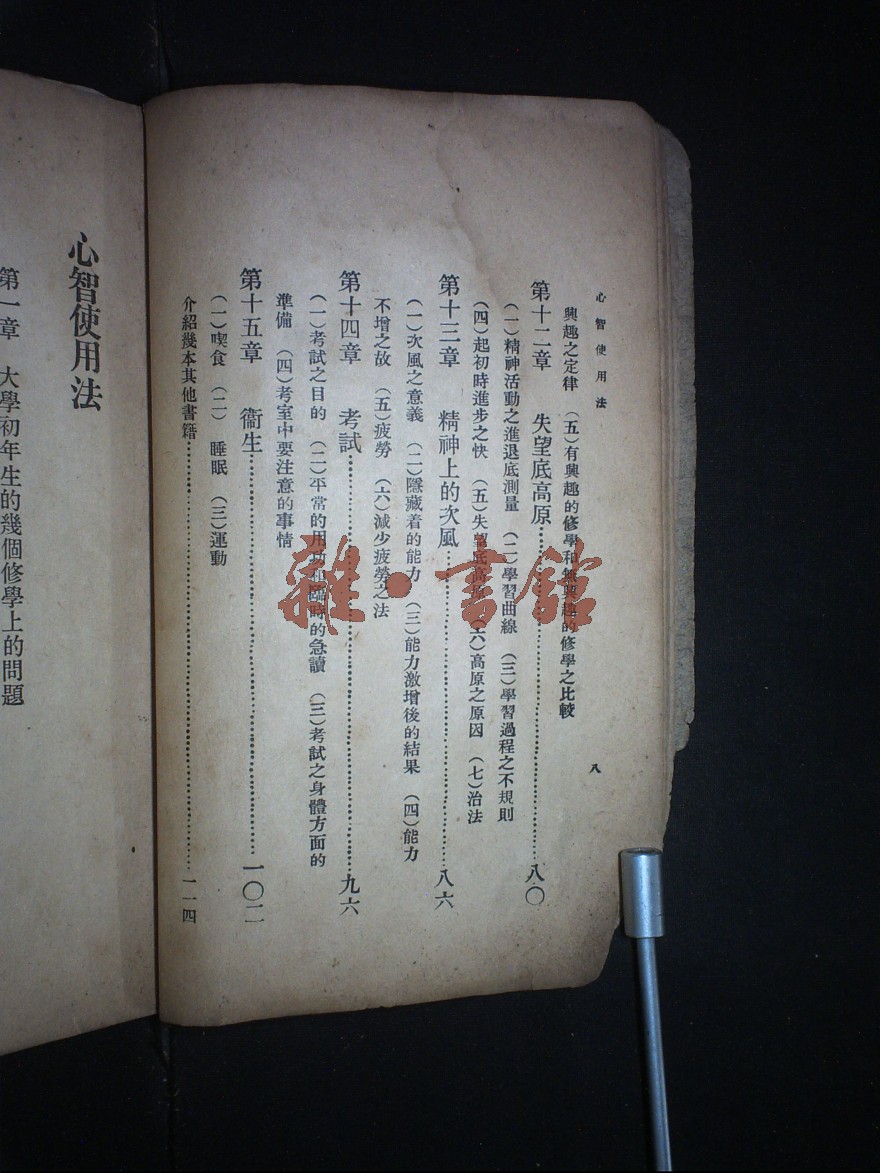 心智使用法
八
興趣之定律 (五)有興趣的修學和無興趣的修學之比較
第十二章 失望底高原……八〇
(一)精神活動之進退底測量 (二)學習曲線 (三)學習過程之不規則
(四)起初時進步之快 (五)失望底高原 (六)高原之原因 (七)治法
第十三章 精神上的次風……八六
(一)次風之意義 (二)隱藏着的能力 (三)能力激增後的結果 (四)能力
不增之故 (五)疲勞 (六)減少疲勞之法
第十四章 考試……九六
(一)考試之目的 (二)平常的用功和臨時的急讀 (三)考試之身體方面的
準備 (四)考室中要注意的事情
第十五章 衞生……一〇二
(一)喫食 (二) 睡眠 (三)運動
介紹幾本其他書籍……一一四
心智使用法
第一章 大學初年生的幾個修學上的問題
雜·書館